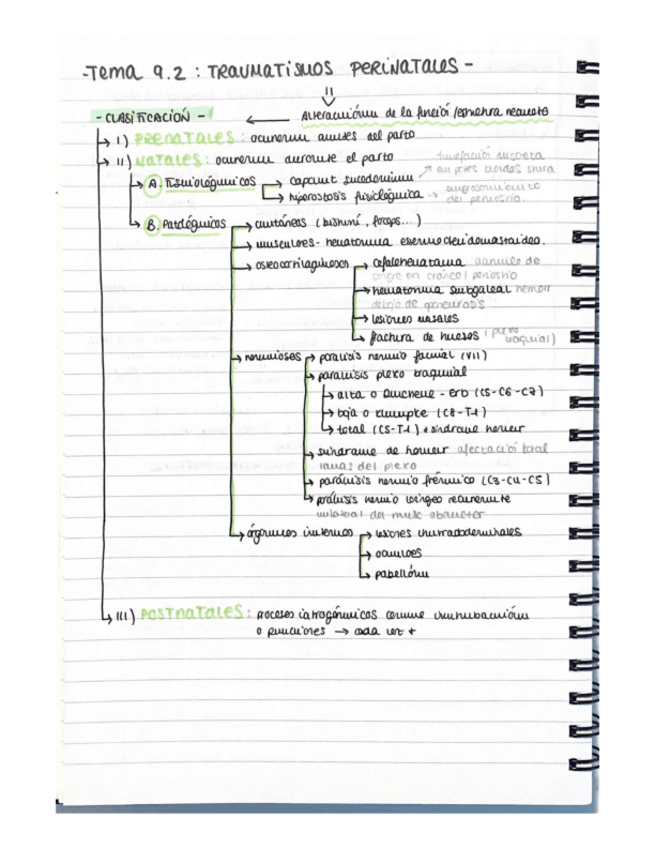 -TEMA 9.2: TRAUMATISMOS PERINATALES-
Alteración de la función/estructura neonato
-CLASIFICACIÓN-
I) PRENATALES: ocurren antes del parto
II) NATALES: ocurren durante el parto
A. Fisiológicos
caput succedaneum
hiperostosis fisiológica
engrosamiento del periostio.
B. Patológicos
cutáneas (bisturí, fórceps...)
musculares - hematoma esternocleidomastoideo.
osteocartilaginosos
cefalohematoma acúmulo de
sangre en cráneo/periostio
hematoma subgaleal hemorr
debajo de galea
lesiones nasales
fractura de huesos (plexo
braquial)
nerviosas
parálisis nervio facial (VII)
parálisis plexo braquial
alta o Duchene-Erb (C5-C6-C7)
baja o Klumpke (C8-T1)
total (C5-T1) + síndrome horner
síndrome de horner afectación total
ramas del plexo
parálisis nervio frénico (C3-C4-C5)
parálisis nervio laríngeo recurrente
unilateral del musc abductor
órganos internos
lesiones intraabdominales
oculares
pabellón
III) POSTNATALES: procesos iatrogénicos como intubación
o punciones → cada vez +